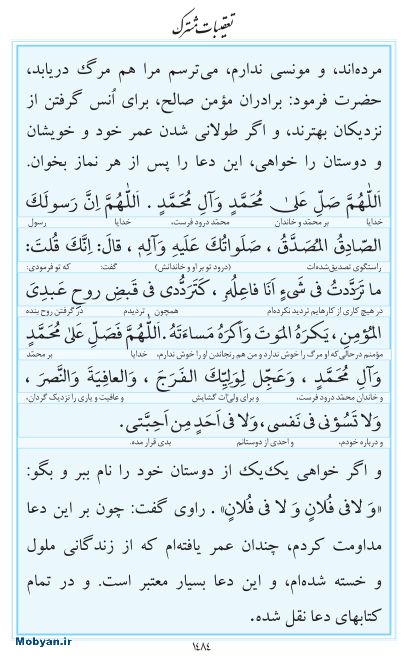 تعقیبات مشترک
مرده‌اند، و مونسی ندارم، می‌ترسم مرا هم مرگ دریابد،
حضرت فرمود: برادران مؤمن صالح، برای اُنس گرفتن از
نزدیکان بهترند، و اگر طولانی شدن عمر خود و خویشان
و دوستان را خواهی، این دعا را پس از هر نماز بخوان.
اَللّٰهُمَّ صَلِّ عَلیٰ مُحَمَّدٍ وَآلِ مُحَمَّدٍ . اَللّٰهُمَّ اِنَّ رَسولَكَ
خدایا بر محمّد و خاندان محمّد درود فرست، خدایا رسول
الصّادِقُ المُصَدَّقُ ، صَلَواتُكَ عَلَیهِ وَآلِهِ ، قالَ: اِنَّكَ قُلتَ:
راستگوی تصدیق‌شده‌ات (درود تو بر او و خاندانش) گفت: که تو فرمودی:
ما تَرَدَّدتُ فی شَیءٍ اَنَا فاعِلُهُ ، کَتَرَدُّدی فی قَبضِ روحِ عَبدِیَ
در هیچ کاری از کارهایم تردید نکرده‌ام همچون تردیدم در گرفتن روح بنده
المُؤمِنِ ، یَکرَهُ المَوتَ وَاَکرَهُ مَساءَتَهُ . اَللّٰهُمَّ فَصَلِّ عَلیٰ مُحَمَّدٍ
مؤمنم در حالی که او مرگ را خوش ندارد و من هم رنجاندن او را خوش ندارم، خدایا بر محمّد
وَآلِ مُحَمَّدٍ ، وَعَجِّل لِوَلِیِّكَ الفَرَجَ ، وَالعافِیَةَ وَالنَّصرَ ،
و خاندان محمّد درود فرست، و برای ولی‌ات گشایش و عافیت و یاری را نزدیک گردان،
وَلا تَسُؤنی فی نَفسی ، وَلا فی اَحَدٍ مِن اَحِبَّتی.
و درباره خودم، و احدی از دوستانم بدی قرار مده.
و اگر خواهی یک‌یک از دوستان خود را نام ببر و بگو:
«وَ لا فی فُلانٍ وَ لا فی فُلانٍ» . راوی گفت: چون بر این دعا
مداومت کردم، چندان عمر یافته‌ام که از زندگانی ملول
و خسته شده‌ام، و این دعا بسیار معتبر است. و در تمام
کتابهای دعا نقل شده.
۱۴۸۴
Mobyan.ir